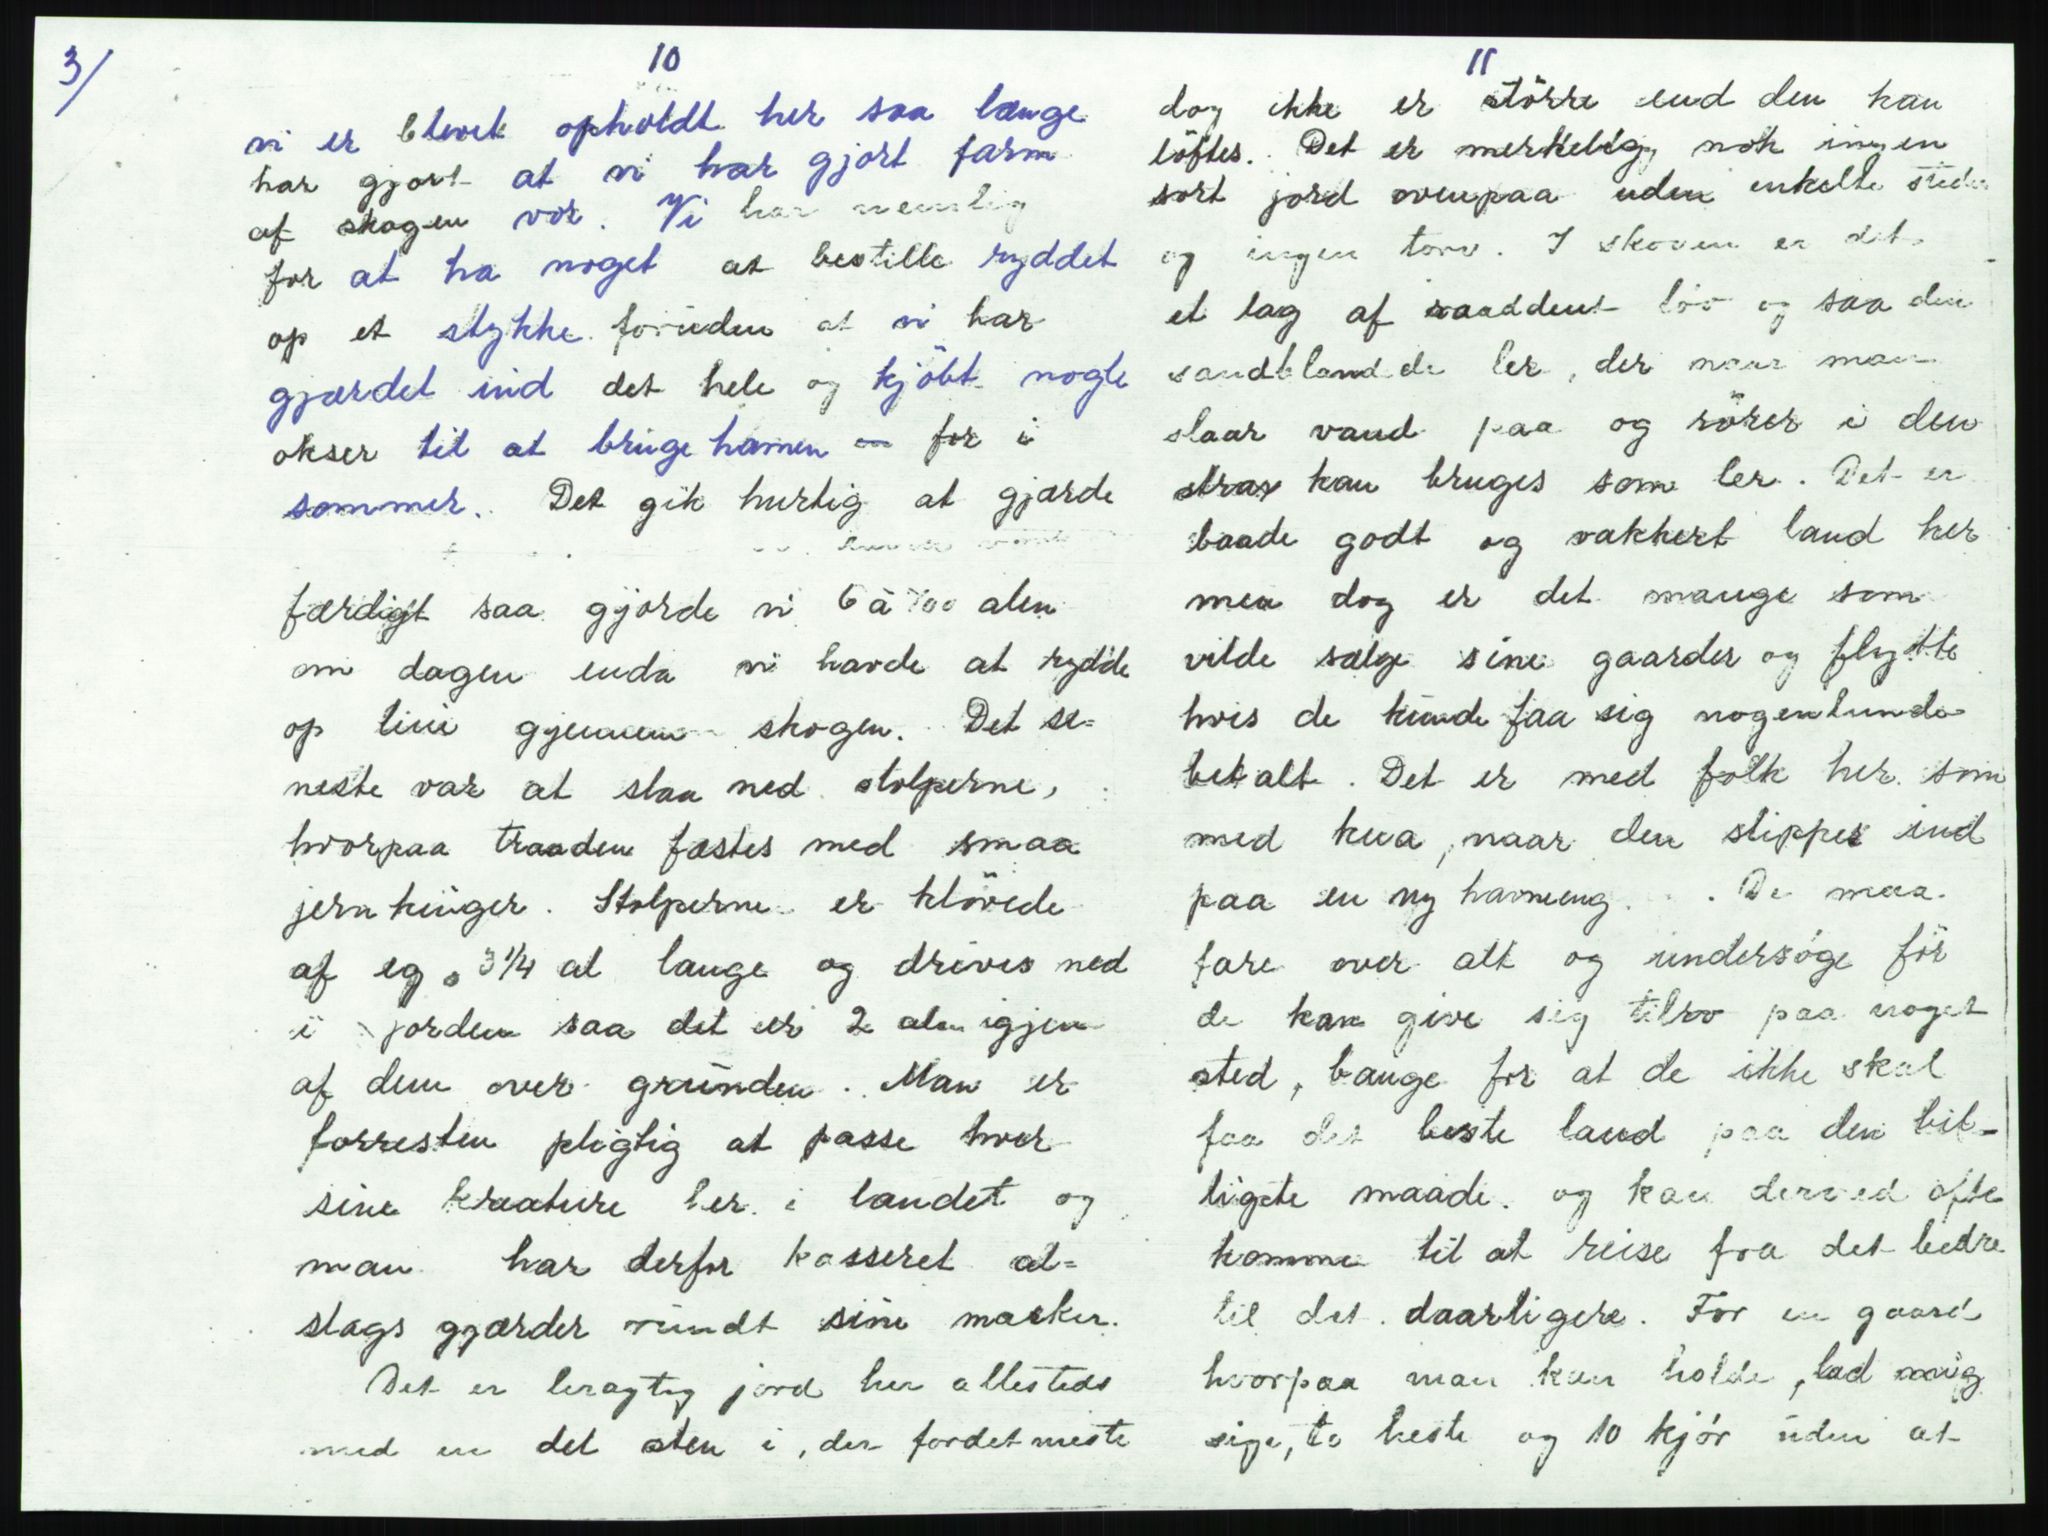 3/
10
vi er blevet opholdt her saa længe
har gjort at vi har gjort farm
af skogen vor. Vi har nemlig
for at ha noget at bestille ryddet
op et stykke foruden at vi har
gjærdet ind det hele og kjöbt nogle
okser til at bruge hamen for i
sommer. Det gik hurtig at gjærde
færdigt saa gjorde vi 6 à 700 alen
om dagen enda vi havde at rydde
op linie gjennem skogen. Det se=
neste var at slaa ned stolperne,
hvorpaa traaden fæstes med smaa
jern kinger. Stolperne er klövede
af eg 3 1/4 al lange og drives ned
i jorden saa det er 2 alen igjen
af dem over grunden. Man er
forresten pligtig at passe hver
sine kreature her i landet og
man har derfor kasseret al=
slags gjærder rundt sine marker.
Det er leragtig jord her allesteds
med en del sten i, der fordetmeste
11
dog ikke er större end den kan
löftes. Det er merkelig nok ingen
sort jord ovenpaa uden enkelte steder
og ingen torv. I skoven er det
et lag af raaddent löv og saa den
sandblandede ler, der naar man
slaar vand paa og rörer i den
strax kan bruges som ler. Det er
baade godt og vakkert land her
men dog er det mange som
vilde sælge sine gaarder og flytte
hvis de kunde faa sig nogenlunde
betalt. Det er med folk her som
med kua, naar den slippes ind
paa en ny havneeng. De maa
fare over alt og undersöge för
de kan give sig tilro paa noget
sted, bange for at de ikke skal
faa det beste land paa den bil-
ligste maade og kan derved ofte
komme til at reise fra det bedre
til det daarligere. For en gaard
hvorpaa man kan holde, lad mig
sige, to heste og 10 kjör uden at